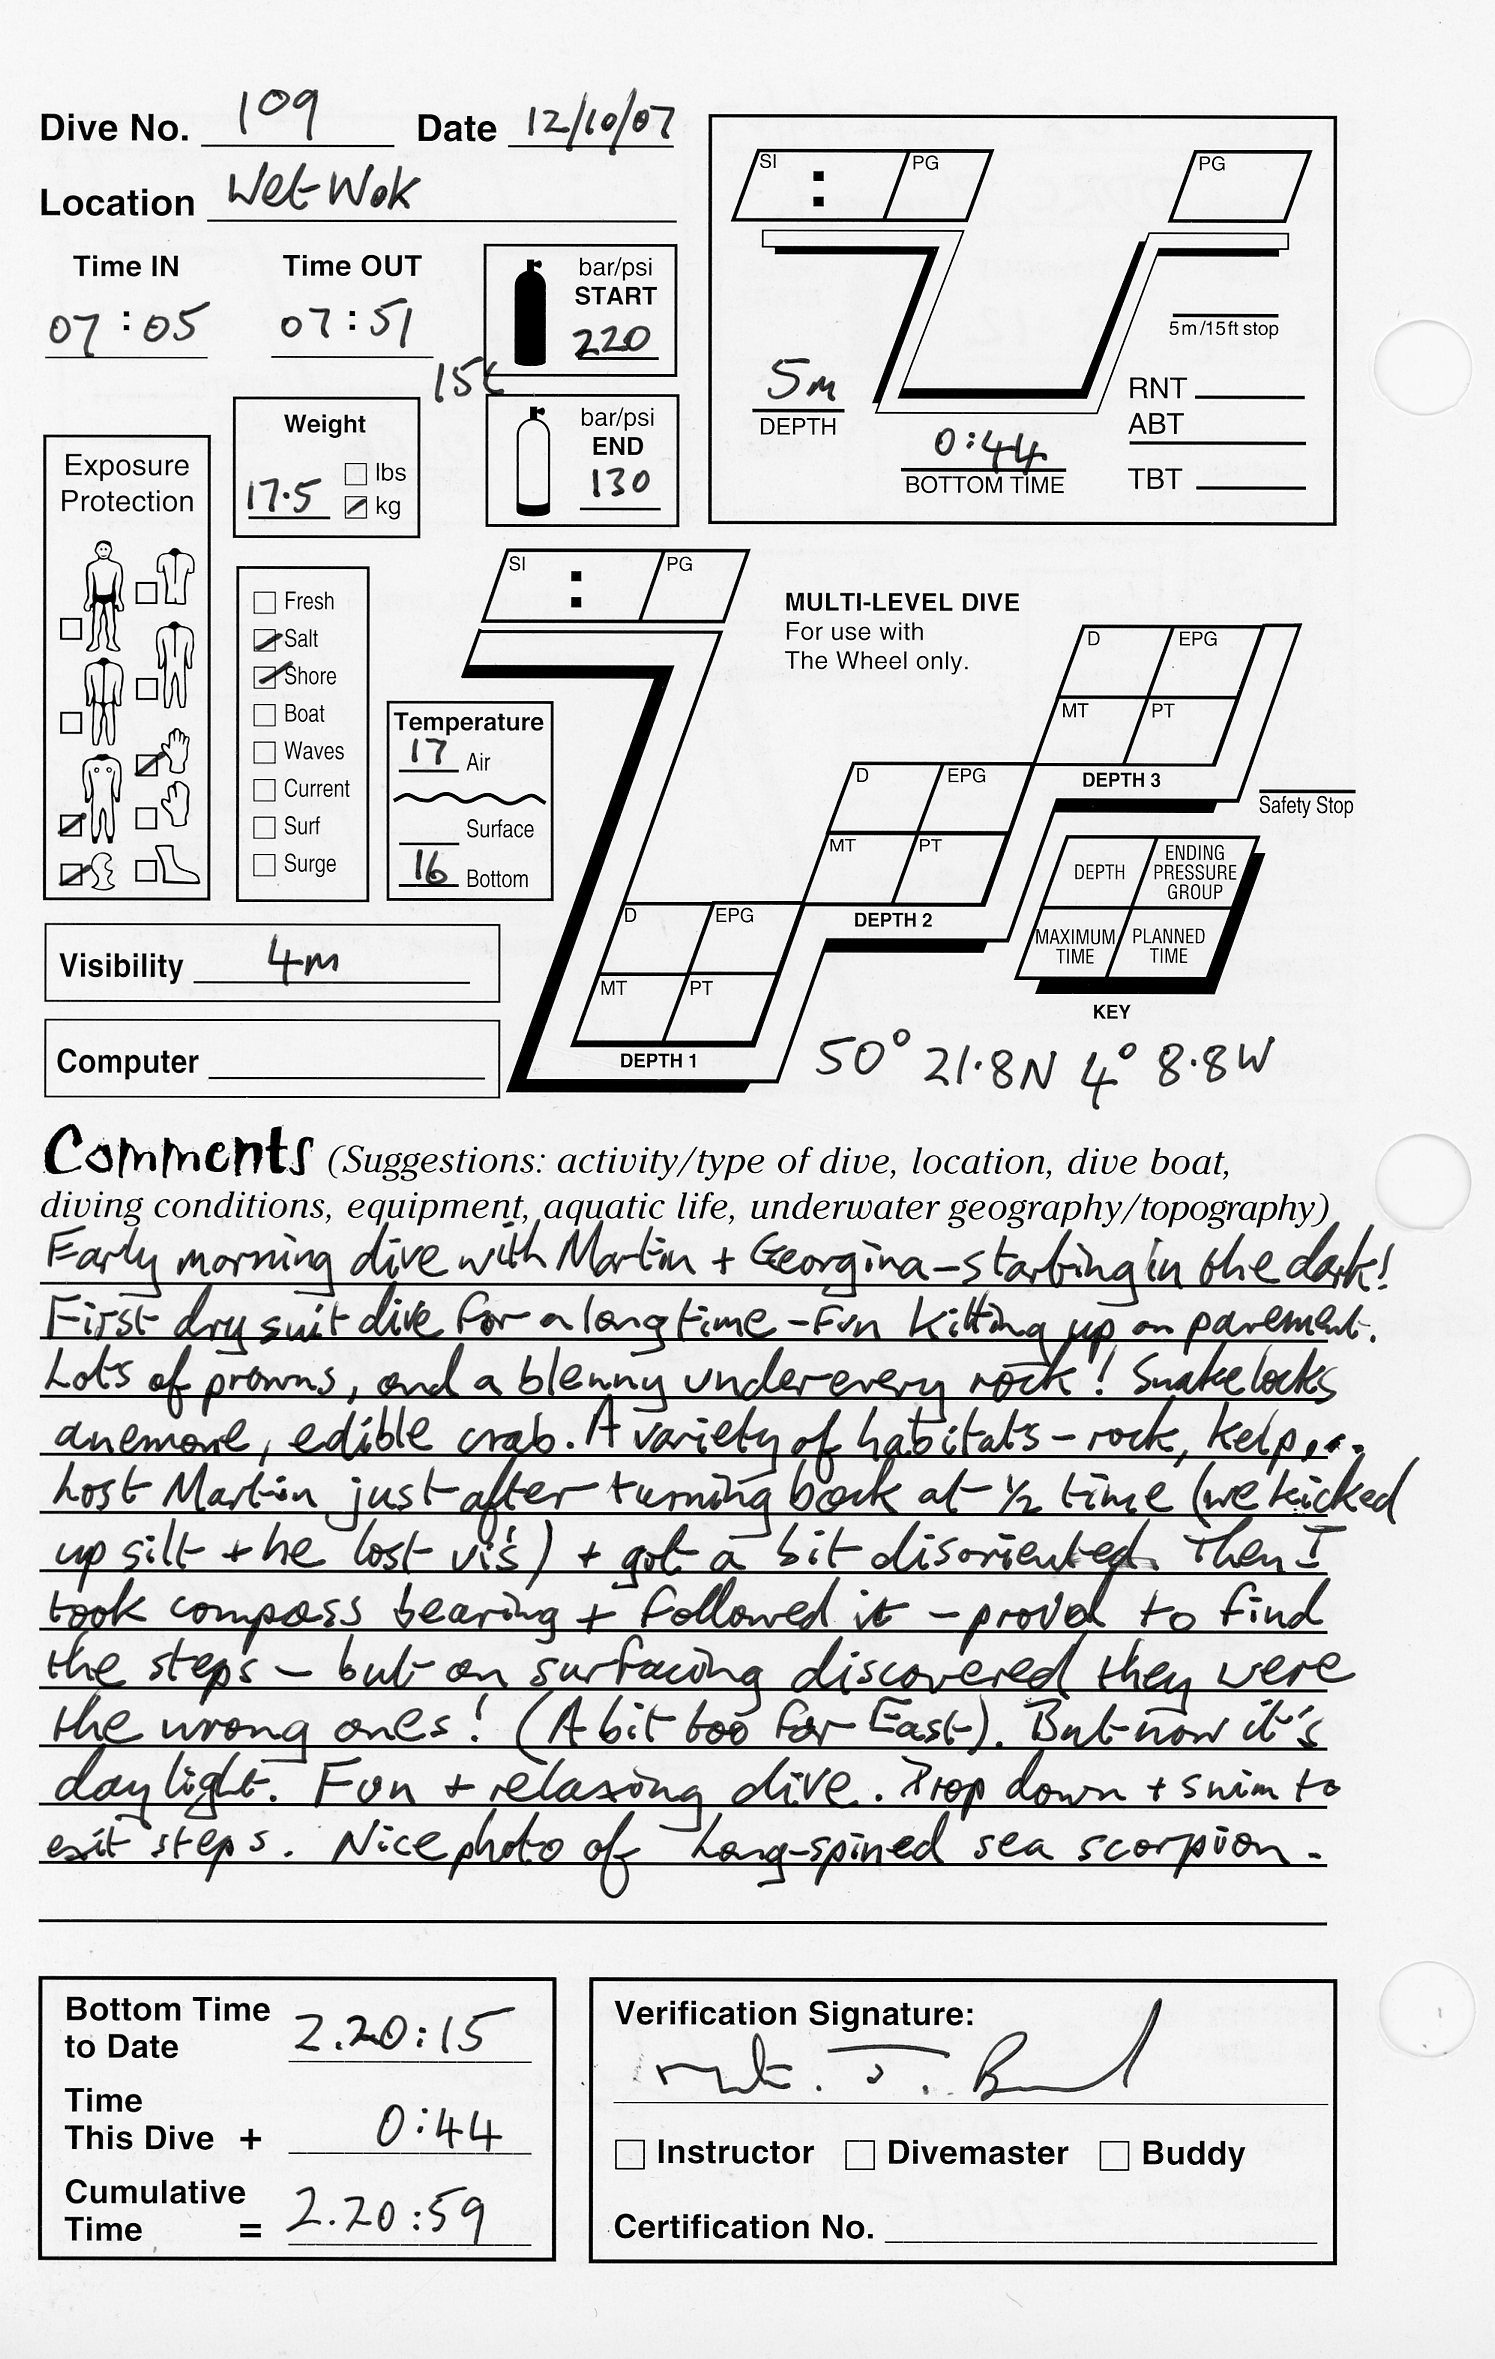 Dive No. 109 Date 12/10/07
Location Wet Wok
Time IN Time OUT
07:05 07:51
bar/psi
START
220
15L
bar/psi
END
130
Weight
17.5
lbs
kg
SI : PG PG
5m/15ft stop
5m
DEPTH
0:44
BOTTOM TIME
RNT
ABT
TBT
Exposure
Protection
Fresh
Salt
Shore
Boat
Waves
Current
Surf
Surge
Temperature
17 Air
Surface
16 Bottom
Visibility 4m
Computer
SI : PG
MULTI-LEVEL DIVE
For use with
The Wheel only.
D EPG
MT PT
DEPTH 3
D EPG
MT PT
DEPTH 2
D EPG
MT PT
DEPTH 1
Safety Stop
DEPTH ENDING PRESSURE GROUP
MAXIMUM TIME PLANNED TIME
KEY
50° 21.8N 4° 8.8W
Comments (Suggestions: activity/type of dive, location, dive boat,
diving conditions, equipment, aquatic life, underwater geography/topography)
Early morning dive with Martin + Georgina - starting in the dark!
First dry suit dive for a long time - Fun kitting up on pavement.
Lots of prawns, and a blenny under every rock! Snakelocks
anemone, edible crab. A variety of habitats - rock, kelp...
Lost Martin just after turning back at ½ time (we kicked
up silt + he lost vis) + got a bit disoriented. Then I
took compass bearing + followed it - proud to find
the steps - but on surfacing discovered they were
the wrong ones! (A bit too far East). But now it's
daylight. Fun + relaxing dive. Drop down + swim to
exit steps. Nice photo of Long-spined sea scorpion.
Bottom Time
to Date 2.20:15
Time
This Dive + 0:44
Cumulative
Time = 2.20:59
Verification Signature:
Instructor Divemaster Buddy
Certification No.